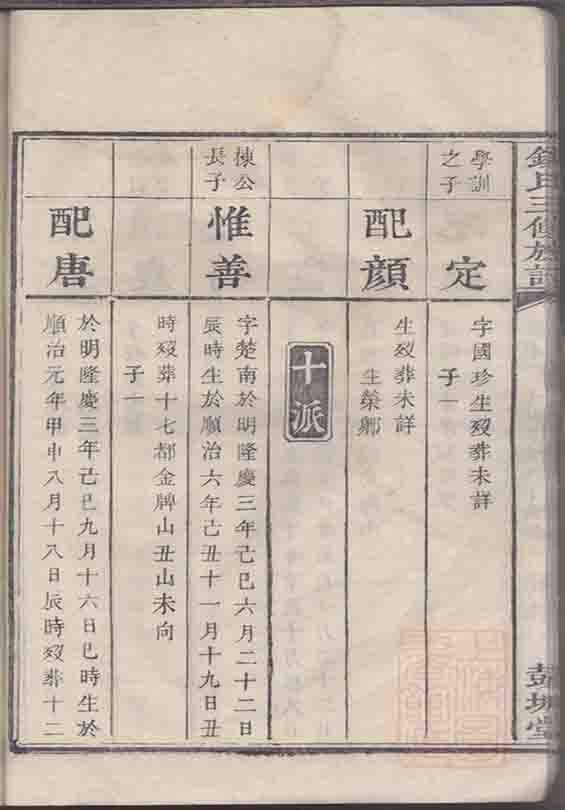 氏三修族譜
彭城堂
學訓
之子
定
字國珍生殁葬未詳
子一
配顏
生殁葬未詳
生榮鄉
十派
棟公
長子
惟善
字楚南於明隆慶三年己巳六月二十二日
辰時生於順治六年己丑十一月十九日丑
時殁葬十七都金牌山丑山未向
子一
配唐
於明隆慶三年己巳九月十六日巳時生於
順治元年甲申八月十八日辰時殁葬十二